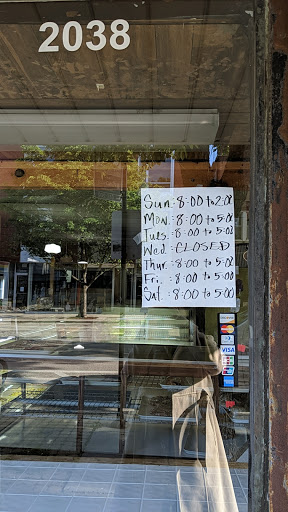 2038
Sun.: 8:00 to 2:00
Mon.: 8:00 to 5:00
Tues.: 8:00 to 5:00
Wed.: CLOSED
Thur.: 8:00 to 5:00
Fri.: 8:00 to 5:00
Sat.: 8:00 to 5:00
VISA